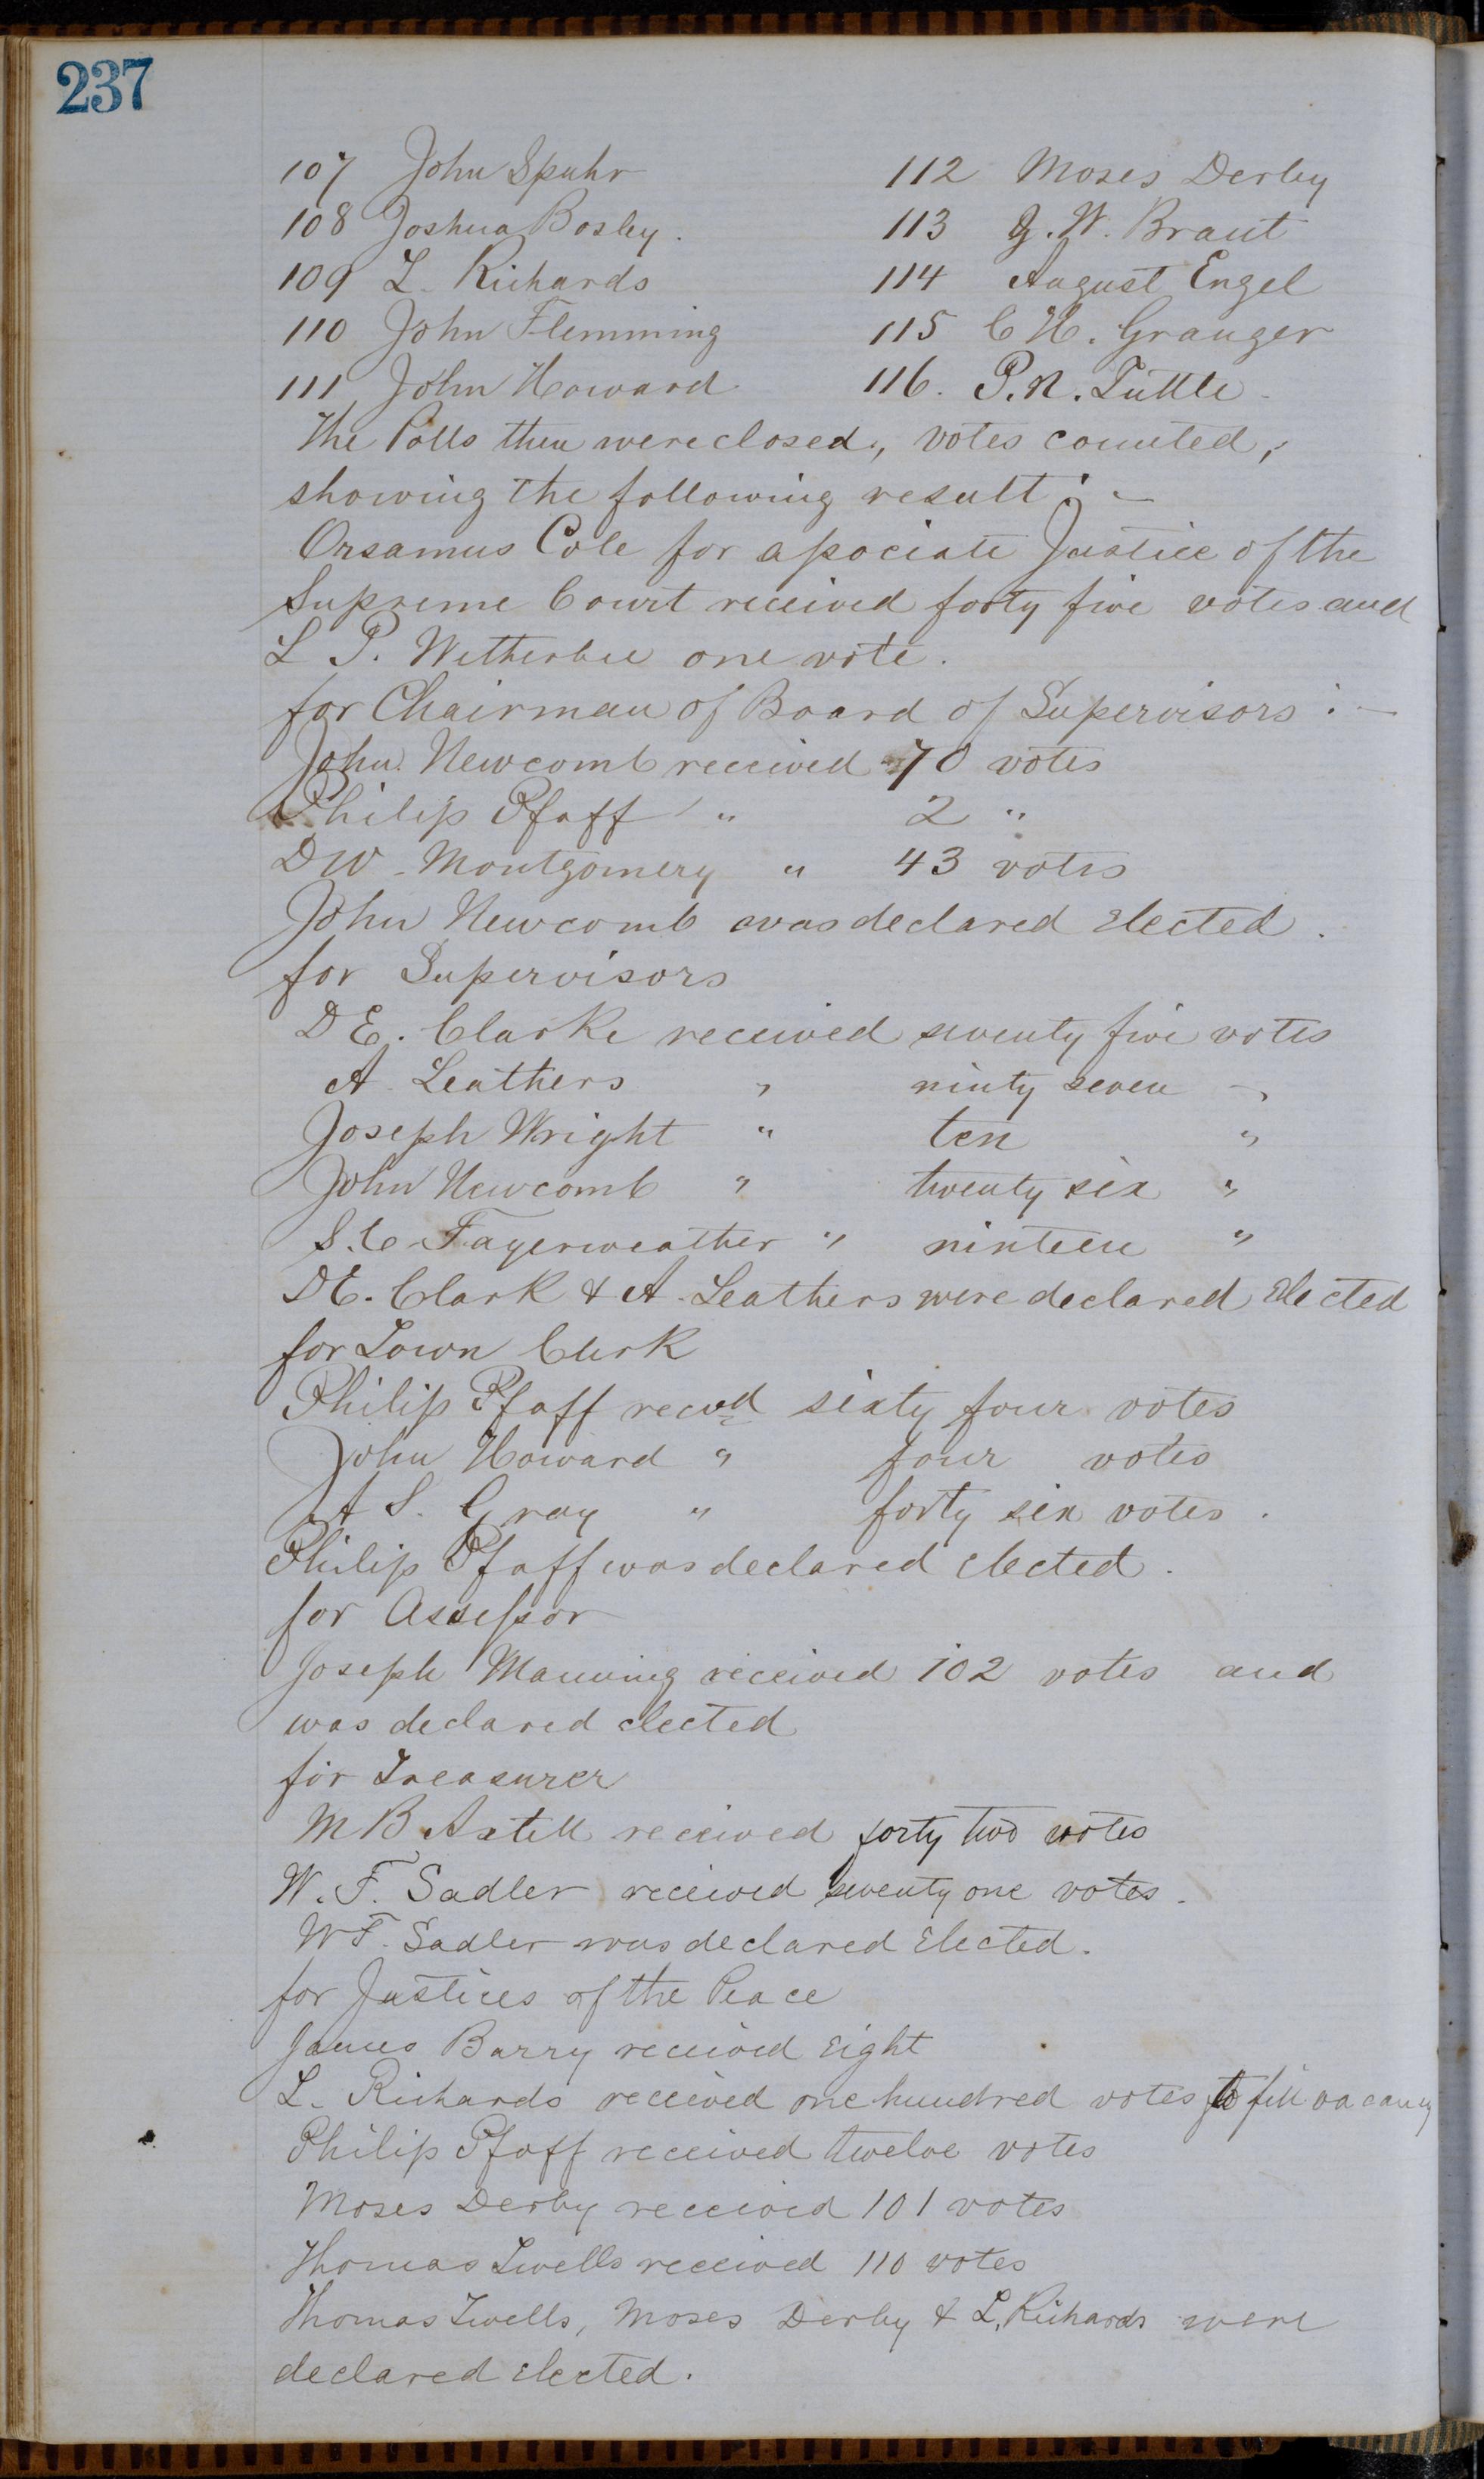 237
107 John Spuhr 112 Moses Derby
108 Joshua Bosley. 113 G. W. Braut
109 L. Richards 114 August Engel
110 John Flemming 115 C H. Granger
111 John Howard 116. P. N. Tuttle.
The Polls then were closed, votes counted,
showing the following result: —
Orsamus Cole for associate Justice of the
Supreme Court received forty five votes and
L P. Wetherbee one vote.
for Chairman of Board of Supervisors: —
John. Newcomb received 70 votes
Philip Pfaff " 2 "
D W. Montgomery " 43 votes
John Newcomb was declared Elected.
for Supervisors
D E. Clarke received seventy five votes
A. Leathers " ninty seven "
Joseph Wright " ten "
John Newcomb " twenty six "
S. C. Fayerweather " ninteen "
D E. Clark & A. Leathers were declared Elected
for Town Clerk
Philip Pfaff recvd sixty four votes
John Howard " four votes
A S. Gray " forty six votes.
Philip Pfaff was declared elected.
for Assessor
Joseph Manning received 102 votes and
was declared elected
for Treasurer
M B Axtell received forty two votes
W. F. Sadler received seventy one votes.
W F. Sadler was declared Elected.
for Justices of the Peace
James Barry received Eight
L. Richards received one hundred votes to fill vacancy
Philip Pfaff received twelve votes
Moses Derby received 101 votes
Thomas Twells received 110 votes
Thomas Twells, Moses Derby & L. Richards were
declared elected.